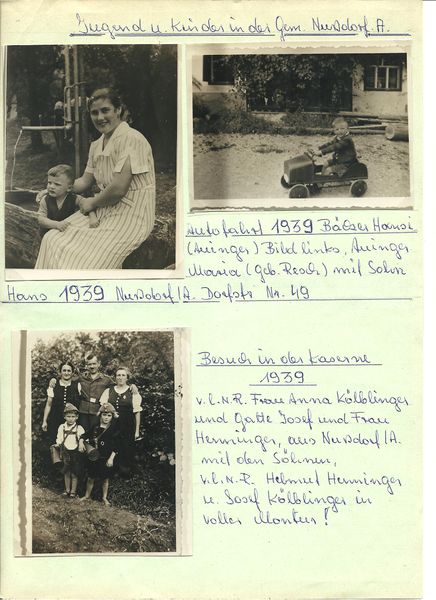 Jugend u. Kinder in der Gem. Nußdorf. A.
Autofahrt 1939 Bälzer Hansi
(Auinger) Bild links, Auinger
Maria (geb. Resch) mit Sohn
Hans 1939 Nußdorf/A. Dorfstr Nr. 49
Besuch in der Kaserne
1939
v.l.n.R. Frau Anna Kölblinger
und Gatte Josef und Frau
Henninger, aus Nußdorf/A.
mit den Söhnen,
v.l.n.R. Helmut Henninger
u. Josef Kölblinger in
voller Montur!